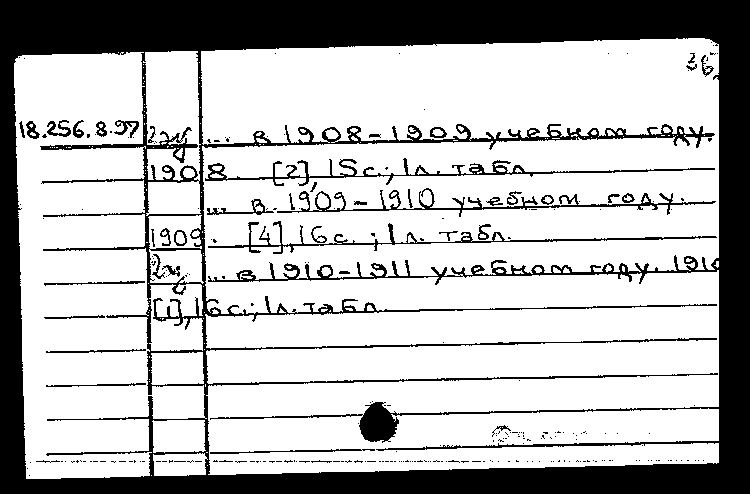 36.
18.256.8.97 2эк ... в 1908-1909 учебном году.
1908. [2], 15с.; 1л. табл.
... в 1909-1910 учебном году.
1909. [4], 16с.; 1л. табл.
2эк ... в 1910-1911 учебном году. 1910
[1], 16с.; 1л. табл.